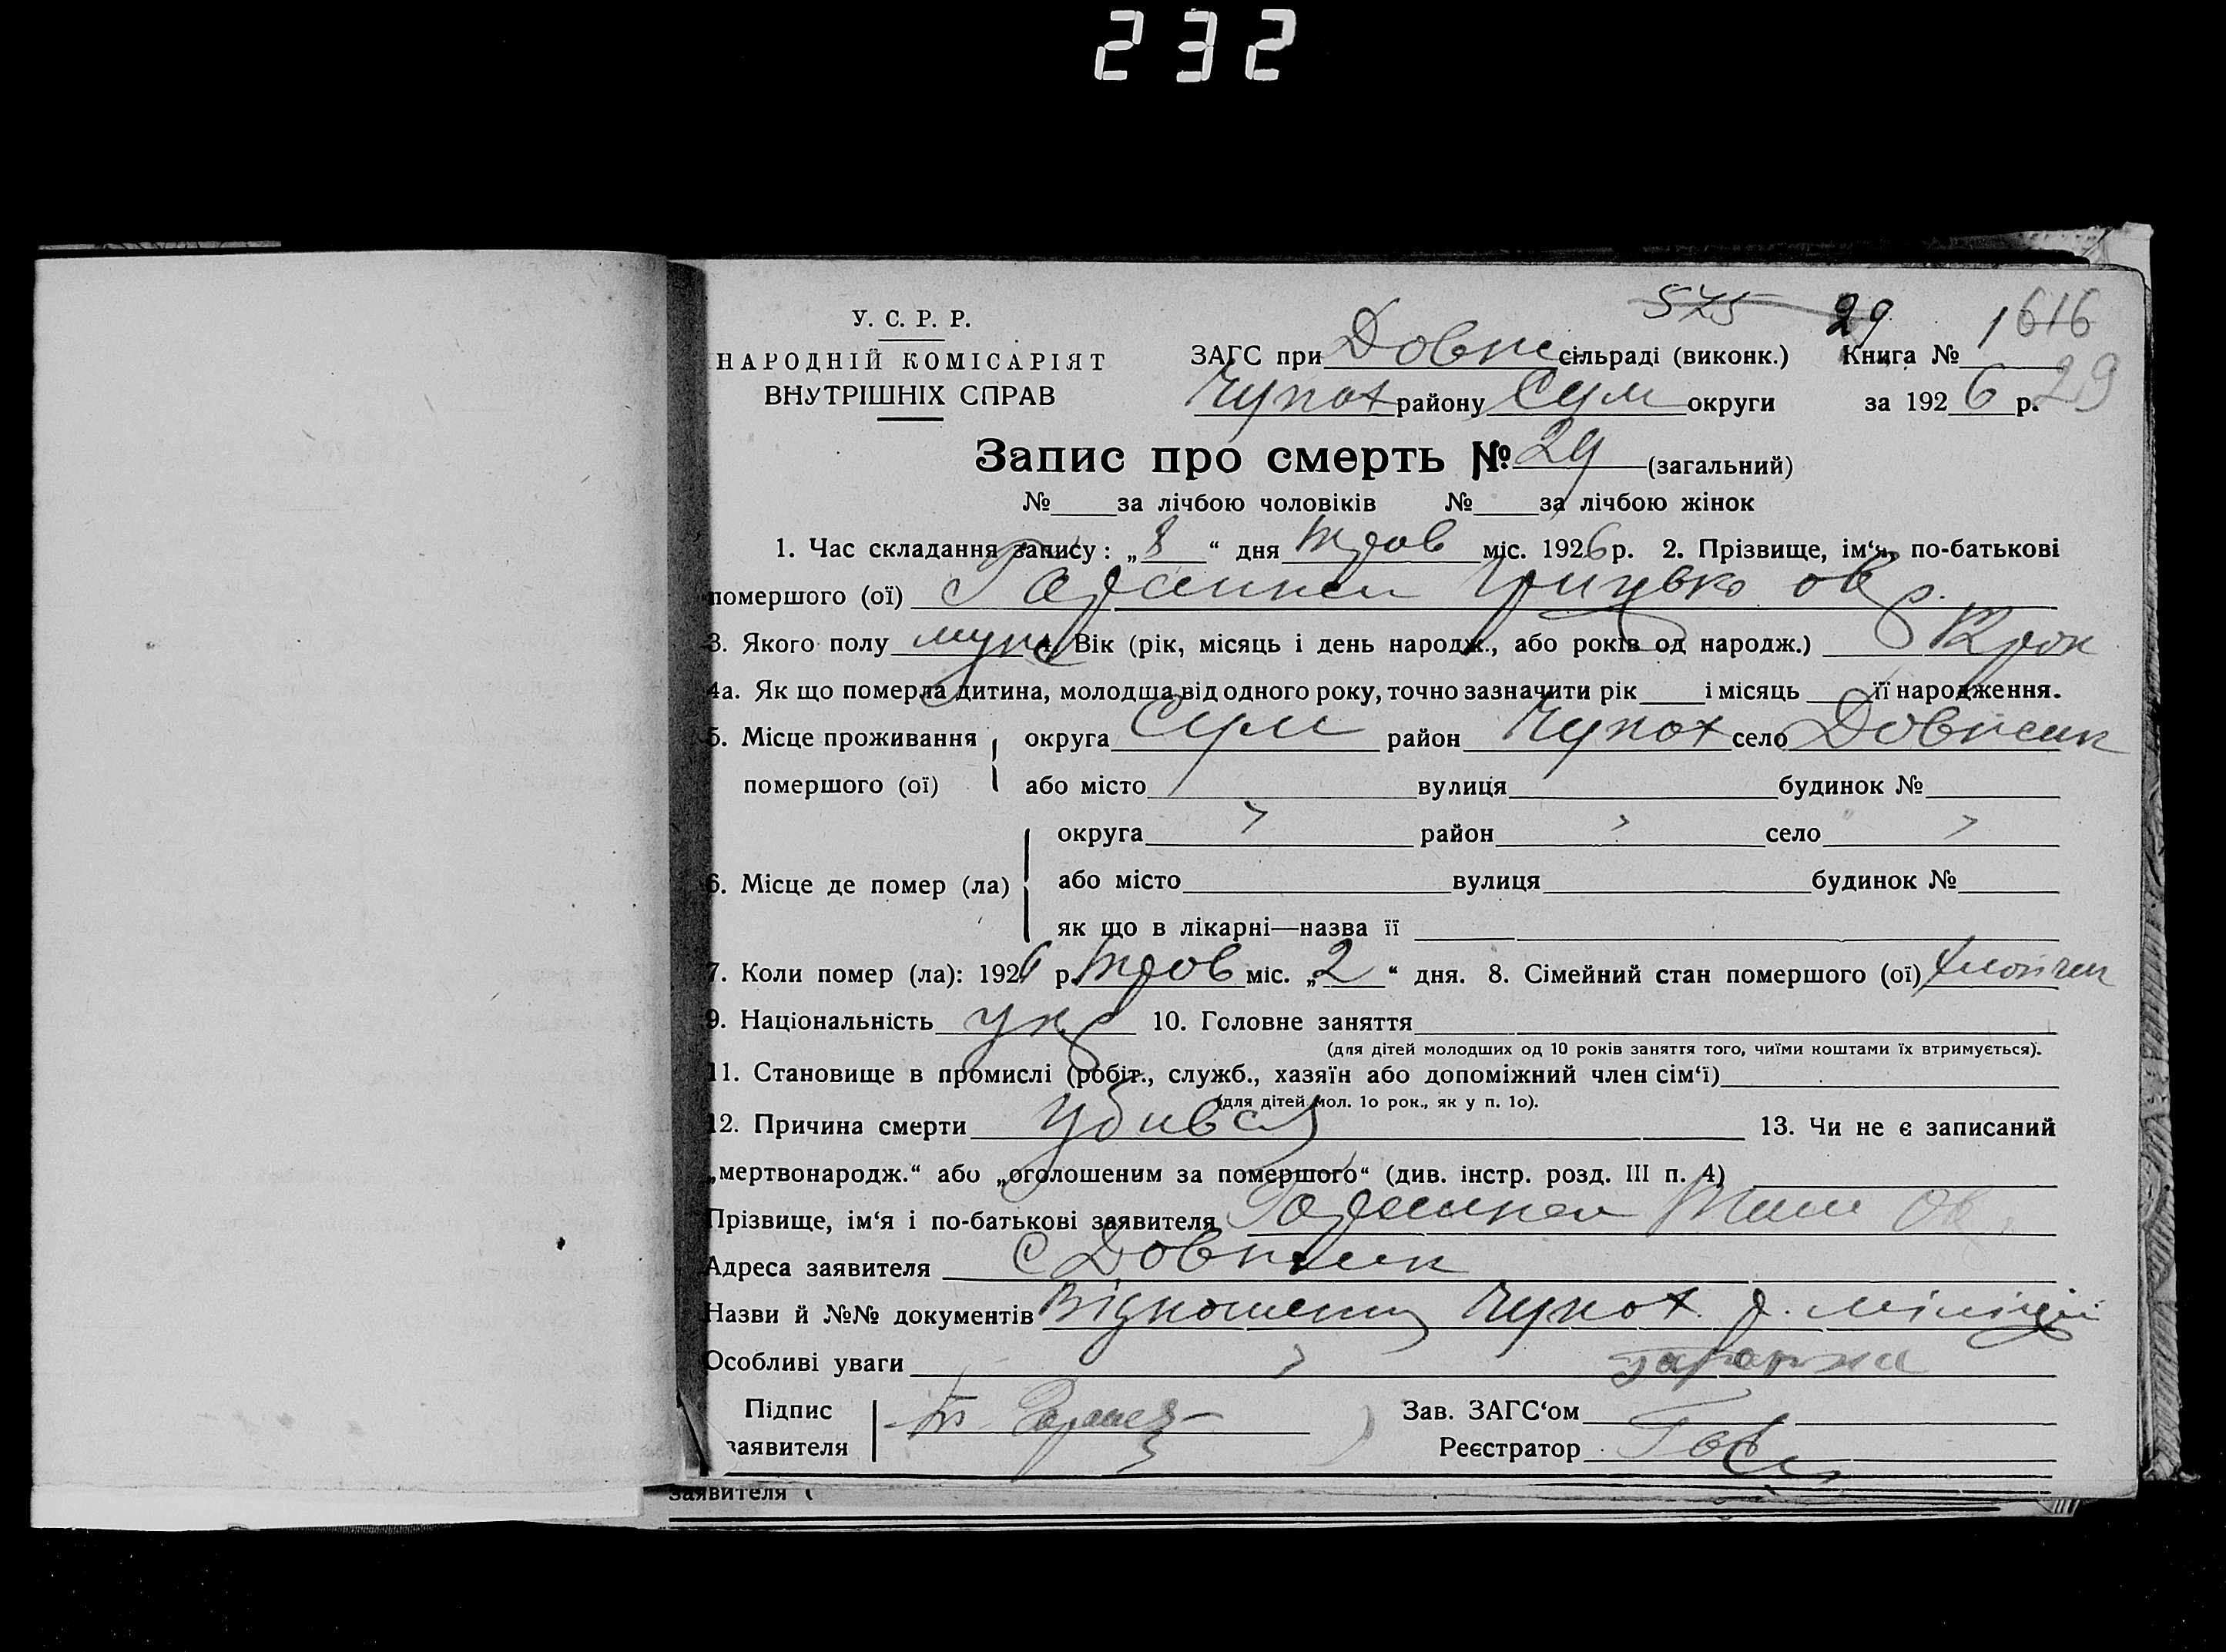 232
575 29 1616
У. С. Р. Р.
НАРОДНІЙ КОМІСАРІЯТ
ВНУТРІШНІХ СПРАВ
ЗАГС при сільраді (виконк.) Книга №
29
Чупах району Сум округи за 1926 р.
Запис про смерть № 29 (загальний)
№ за лічбою чоловіків № за лічбою жінок
1. Час складання запису: „8“ дня трав міс. 1926 р. 2. Прізвище, ім‘я, по-батькові
помершого (ої)
3. Якого полу муж 4. Вік (рік, місяць і день народж., або років од народж.) 12 рок
4а. Як що померла дитина, молодша від одного року, точно зазначити рік і місяць її народження.
5. Місце проживання округа Сум район Чупах село
помершого (ої) або місто вулиця будинок №
округа район село
6. Місце де помер (ла) або місто вулиця будинок №
як що в лікарні—назва її
7. Коли помер (ла): 1926 р. трав міс. „2“ дня. 8. Сімейний стан помершого (ої)
9. Національність укр 10. Головне заняття
(для дітей молодших од 10 років заняття того, чиїми коштами їх втримується).
11. Становище в промислі (робіт., служб., хазяїн або допоміжний член сім‘ї)
(для дітей мол. 10 рок., як у п. 10).
12. Причина смерти убився 13. Чи не є записаний
„мертвонародж.“ або „оголошеним за помершого“ (див. інстр. розд. III п. 4)
Прізвище, ім‘я і по-батькові заявителя
Адреса заявителя с
Назви й №№ документів Відношення Чупах р. міліції
Особливі уваги
Підпис Зав. ЗАГС‘ом
заявителя Реєстратор
заявителя